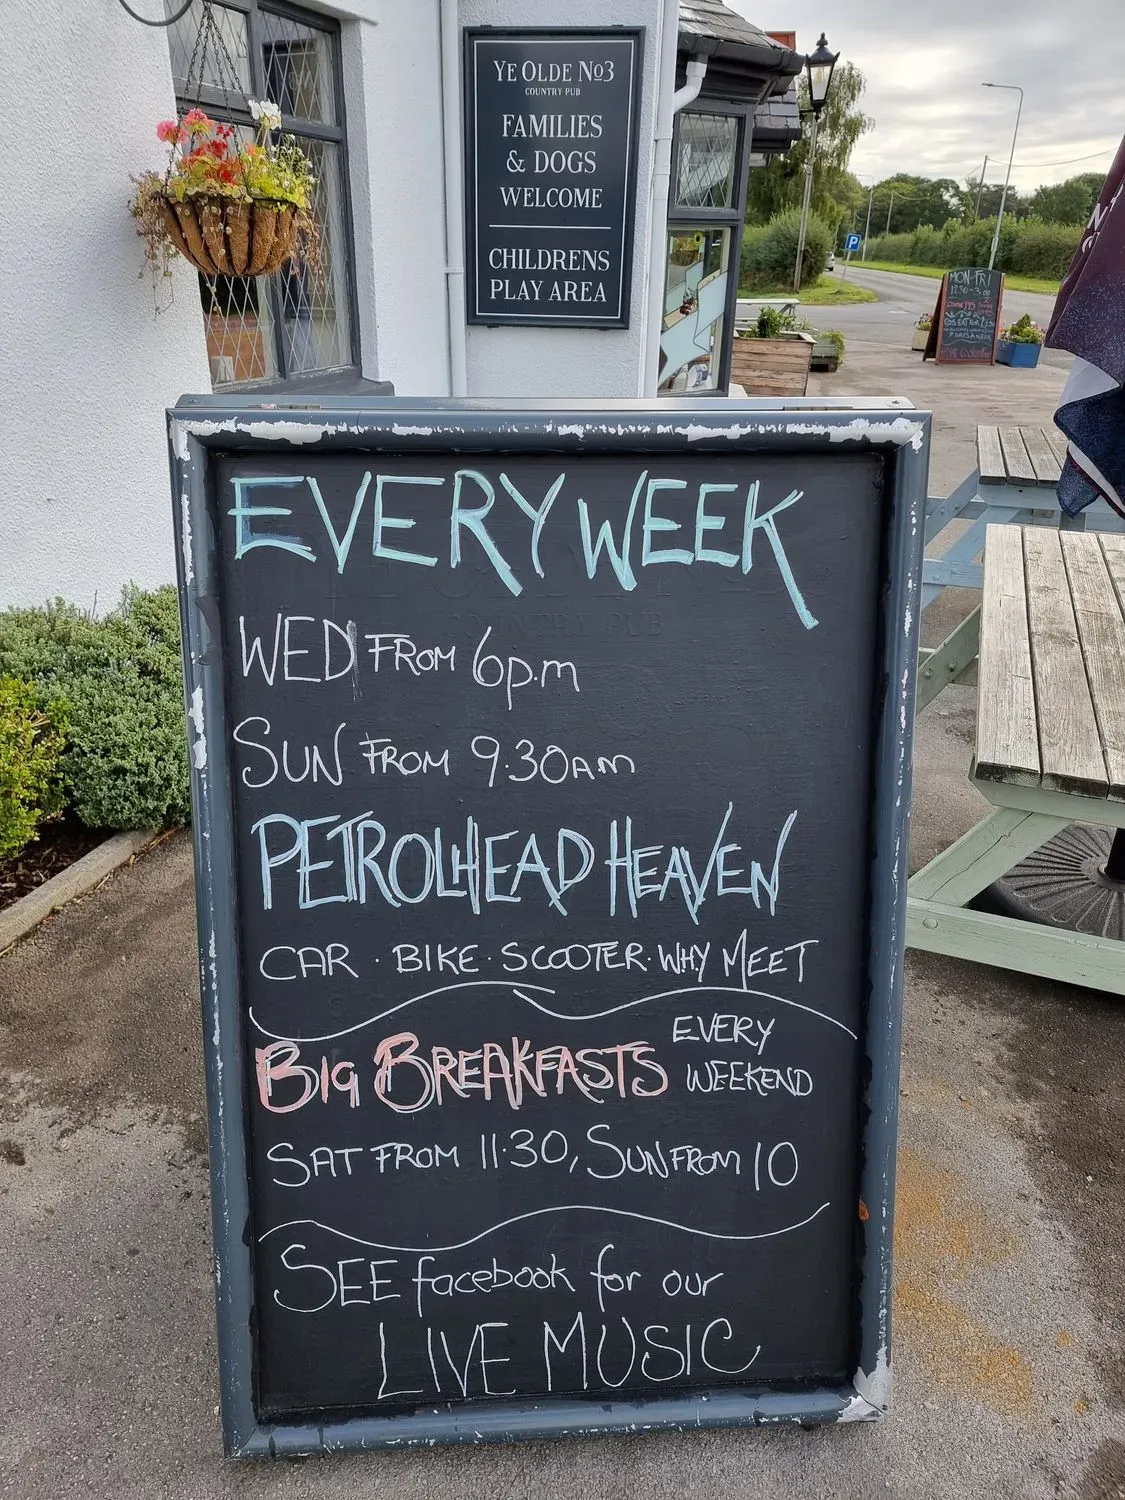 YE OLDE No3
COUNTRY PUB
FAMILIES
& DOGS
WELCOME
CHILDRENS
PLAY AREA
P
MON-FRI
12.30-3.00
EVERY WEEK
WED FROM 6p.m
SUN FROM 9.30AM
PETROLHEAD HEAVEN
CAR · BIKE · SCOOTER · WHY MEET
BIG BREAKFASTS EVERY WEEKEND
SAT FROM 11.30, SUN FROM 10
SEE facebook for our
LIVE MUSIC